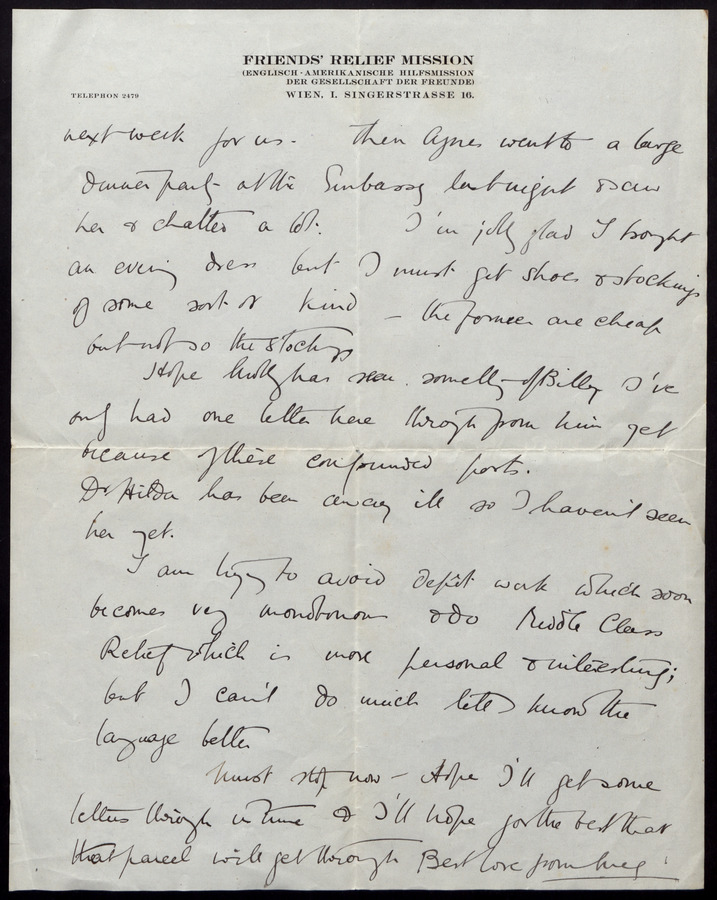 FRIENDS' RELIEF MISSION
(ENGLISCH-AMERIKANISCHE HILFSMISSION
DER GESELLSCHAFT DER FREUNDE)
TELEPHON 2479
WIEN, I. SINGERSTRASSE 16.
next week for us. Then Agnes went to a large
Dinner party at the Embassy last night & saw
her & chatted a lot. I'm jolly glad I bought
an evening dress but I must get shoes & stockings
of some sort or kind – the former are cheap
but not so the stockings
Hope Molly has seen something of Billy I've
only had one letter here through from him yet
because of these confounded ports.
Dr Hilda has been away ill so I haven't seen
her yet.
I am trying to avoid depôt work which soon
becomes very monotonous & do Middle Class
Relief which is more personal & interesting;
but I can't do much till I know the
language better
Must stop now – Hope I'll get some
letters through in time & I'll hope for the best that
that parcel will get through Best love from